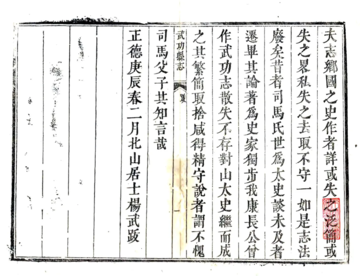 夫志鄉國之史作者詳或失之泛簡或
失之畧私失之去取不守一如是志法
廢矣昔者司馬氏世爲太史談未及者
遷畢其論著爲史家獨步我康長公曾
作武功志散失不存對山太史繼而成
之其繁簡取捨咸得精守說者謂不愧
司馬父子其知言哉
正德庚辰春二月北山居士楊武跋
武功縣志